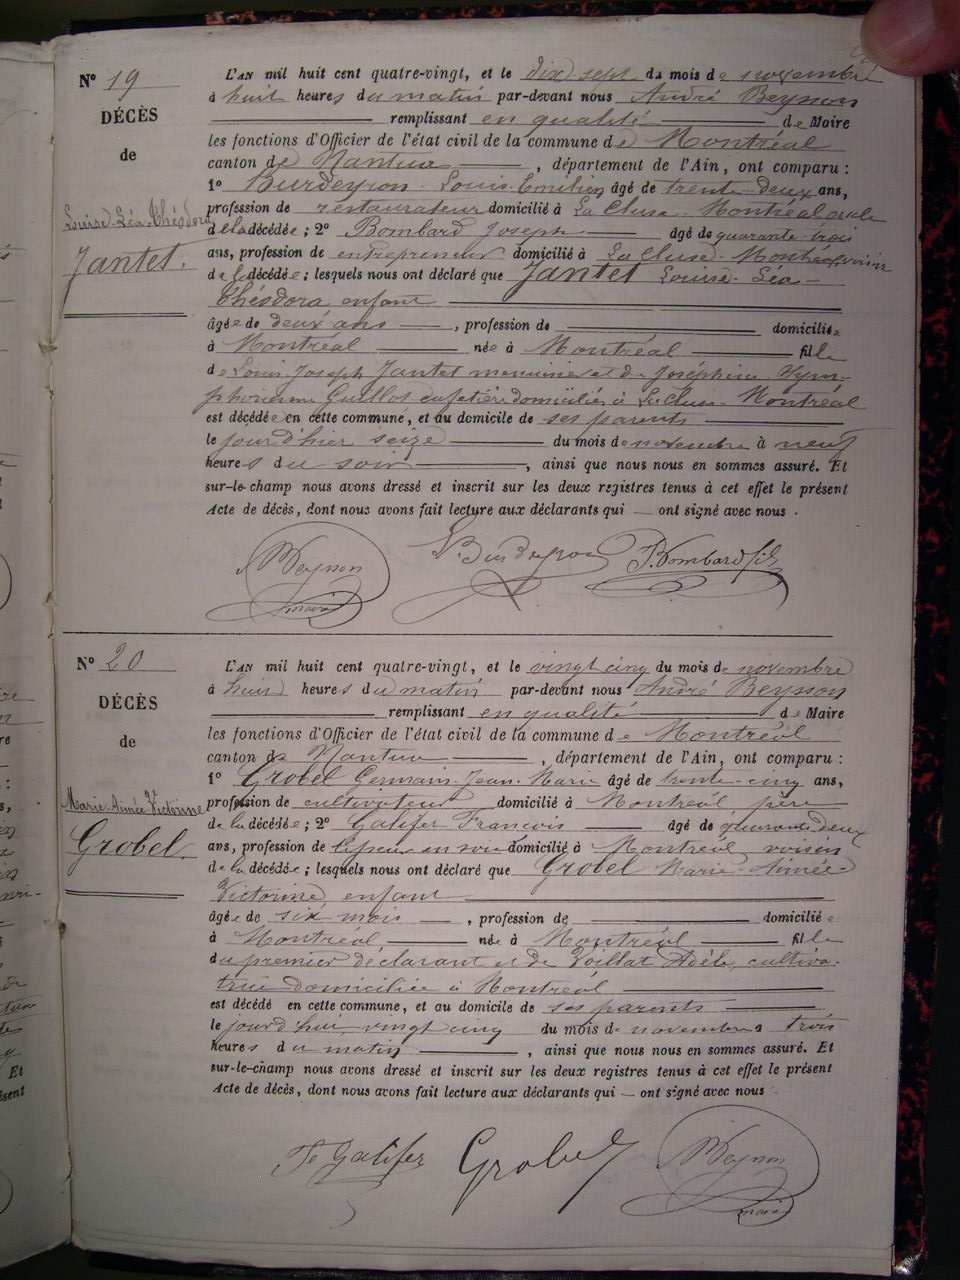 N° 19
DÉCÈS
de
Louise-Léa-Théodora
Jantet.
L'AN mil huit cent quatre-vingt, et le dix sept du mois de novembre
à huit heures du matin par-devant nous André Beysson
remplissant en qualité de Maire
les fonctions d'Officier de l'état civil de la commune de Montréal
canton de Nantua, département de l'Ain, ont comparu :
1° Burdeyron Louis Emilien âgé de trente-deux ans,
profession de restaurateur domicilié à La Cluse Montréal oncle
de la décédée ; 2° Bombard Joseph âgé de quarante-trois
ans, profession de entrepreneur domicilié à La Cluse Montréal voisin
de la décédée ; lesquels nous ont déclaré que Jantet Louise-Léa-
Théodora enfant
âgée de deux ans, profession de domiciliée
à Montréal née à Montréal fille
de Louis Joseph Jantet menuisier et de Joséphine Sym-
phorienne Guillot cafetière domiciliés à La Cluse Montréal
est décédée en cette commune, et au domicile de ses parents
le jour d'hier seize du mois de novembre à neuf
heures du soir, ainsi que nous nous en sommes assuré. Et
sur-le-champ nous avons dressé et inscrit sur les deux registres tenus à cet effet le présent
Acte de décès, dont nous avons fait lecture aux déclarants qui — ont signé avec nous.
Beysson L. Burdeyron J. Bombard fils
maire
N° 20
DÉCÈS
de
Marie-Aimée Victorine
Grobel.
L'AN mil huit cent quatre-vingt, et le vingt cinq du mois de novembre
à huit heures du matin par-devant nous André Beysson
remplissant en qualité de Maire
les fonctions d'Officier de l'état civil de la commune de Montréal
canton de Nantua, département de l'Ain, ont comparu :
1° Grobel Germain-Jean-Marie âgé de trente-cinq ans,
profession de cultivateur domicilié à Montréal père
de la décédée ; 2° Galifer François âgé de quarante deux
ans, profession de en soie domicilié à Montréal voisin
de la décédée ; lesquels nous ont déclaré que Grobel Marie-Aimée-
Victorine, enfant
âgée de six mois, profession de domiciliée
à Montréal, née à Montréal fille
du premier déclarant et de Adèle, cultiva-
trice domiciliée à Montréal
est décédé en cette commune, et au domicile de ses parents
le jour d'hui vingt cinq du mois de novembre à trois
heures du matin, ainsi que nous nous en sommes assuré. Et
sur-le-champ nous avons dressé et inscrit sur les deux registres tenus à cet effet le présent
Acte de décès, dont nous avons fait lecture aux déclarants qui — ont signé avec nous.
Galifer Grobel Beysson
maire